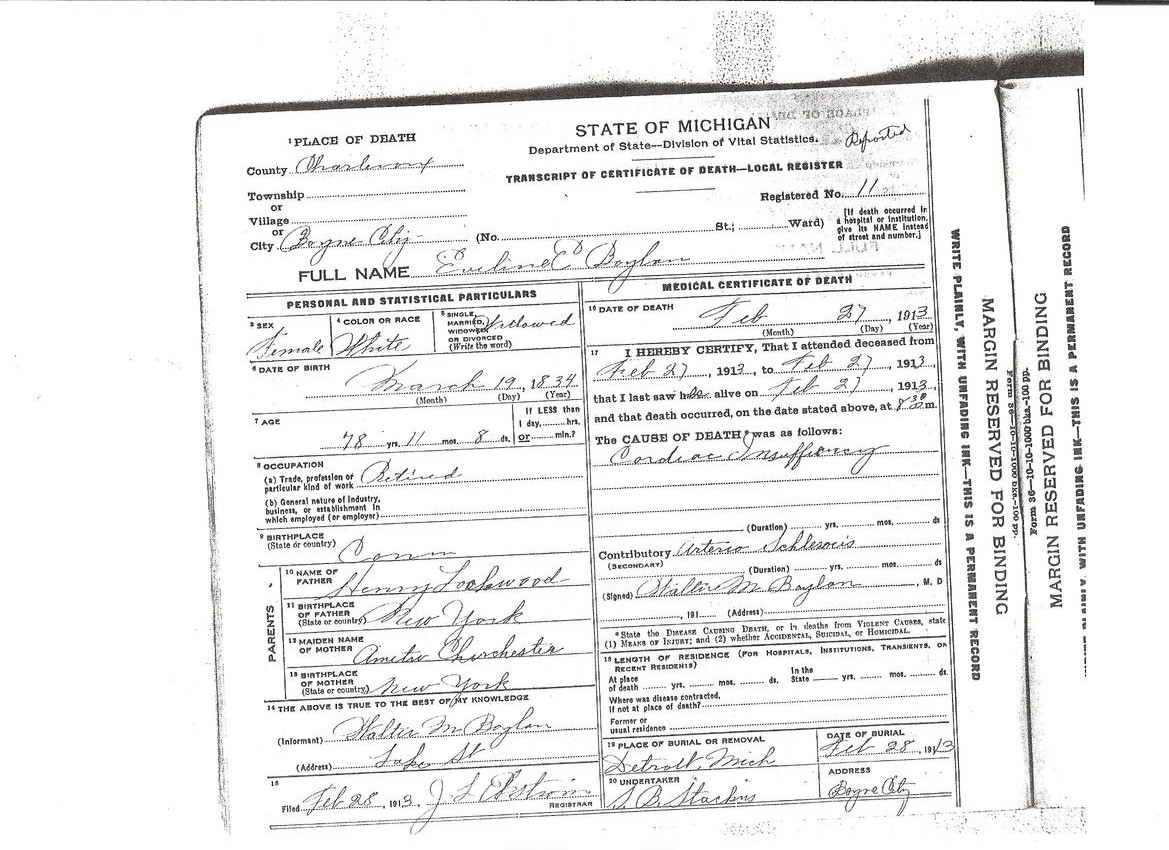 STATE OF MICHIGAN
Department of State—Division of Vital Statistics.
Reported
TRANSCRIPT OF CERTIFICATE OF DEATH—LOCAL REGISTER
Registered No. 11
1 PLACE OF DEATH
County Charlevoix
Township
or
Village
or
City Boyne City (No. St.; Ward)
[If death occurred in
a hospital or institution,
give its NAME instead
of street and number.]
FULL NAME Eveline P Boylan
PERSONAL AND STATISTICAL PARTICULARS
3 SEX
Female
4 COLOR OR RACE
White
5 SINGLE,
MARRIED,
WIDOWED
OR DIVORCED
(Write the word)
Widowed
6 DATE OF BIRTH
March 19, 1834
(Month) (Day) (Year)
7 AGE
78 yrs. 11 mos. 8 ds.
If LESS than
1 day, hrs.
or min.?
8 OCCUPATION
(a) Trade, profession or
particular kind of work Retired
(b) General nature of industry,
business, or establishment in
which employed (or employer)
9 BIRTHPLACE
(State or country) Conn
PARENTS
10 NAME OF
FATHER Henry Lockwood
11 BIRTHPLACE
OF FATHER
(State or country) New York
12 MAIDEN NAME
OF MOTHER Chirchester
13 BIRTHPLACE
OF MOTHER
(State or country) New York
14 THE ABOVE IS TRUE TO THE BEST OF MY KNOWLEDGE
(Informant) Walter M Boylan
(Address) Lake St
15
Filed Feb 28, 1913 J L Ekstrom
REGISTRAR
MEDICAL CERTIFICATE OF DEATH
16 DATE OF DEATH
Feb 27, 1913
(Month) (Day) (Year)
17 I HEREBY CERTIFY, That I attended deceased from
Feb 27, 1913, to Feb 27, 1913,
that I last saw her alive on Feb 27, 1913,
and that death occurred, on the date stated above, at 8 30 m.
The CAUSE OF DEATH* was as follows:
Cordiac Insufficiency
(Duration) yrs. mos. ds
Contributory Arterio Schlerosis
(SECONDARY)
(Duration) yrs. mos. ds
(Signed) Walter M Boylan, M. D
, 191 (Address)
*State the DISEASE CAUSING DEATH, or in deaths from VIOLENT CAUSES, state
(1) MEANS OF INJURY; and (2) whether ACCIDENTAL, SUICIDAL, or HOMICIDAL.
18 LENGTH OF RESIDENCE (FOR HOSPITALS, INSTITUTIONS, TRANSIENTS, OR
RECENT RESIDENTS)
At place
of death yrs. mos. ds.
In the
State yrs. mos. ds.
Where was disease contracted,
if not at place of death?
Former or
usual residence
19 PLACE OF BURIAL OR REMOVAL
Detroit Mich
DATE OF BURIAL
Feb 28, 1913
20 UNDERTAKER
S. B. Stackus
ADDRESS
Boyne City
WRITE PLAINLY, WITH UNFADING INK—THIS IS A PERMANENT RECORD
MARGIN RESERVED FOR BINDING
Form 36—10-10-1000 bks.-100 pp.
Form 36—10-10-1000 bks.-100 pp.
MARGIN RESERVED FOR BINDING
WITH UNFADING INK—THIS IS A PERMANENT RECORD